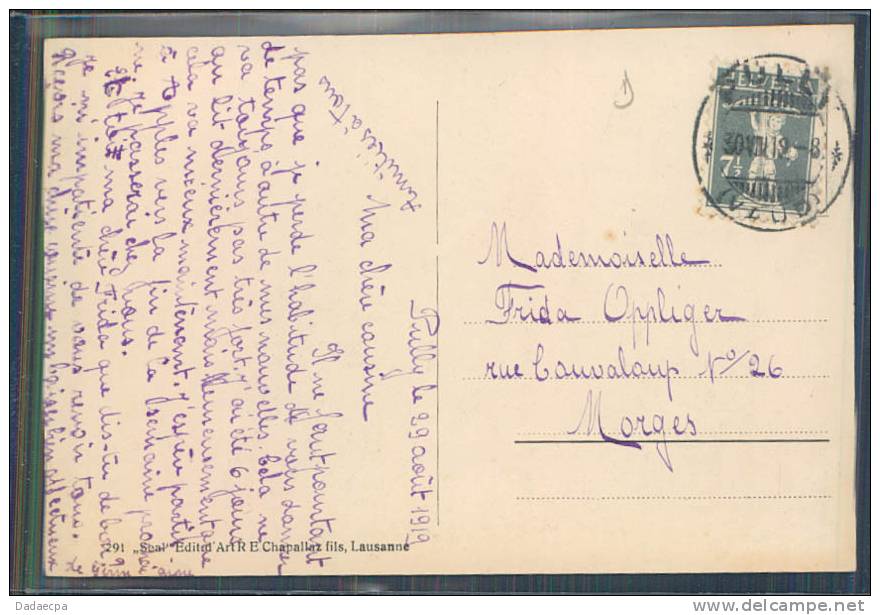 Pully le 29 août 1919
Ma chère cousine
Il ne faut pourtant
pas que je perde l'habitude de vous donner
de temps à autre de mes nouvelles. Cela ne
va toujours pas très fort. J'ai été 6 jours
au lit dernièrement mais heureusement que
cela va mieux maintenant. J'espère partir
à Apples vers la fin de la semaine prochai
ne, je passerai chez vous.
ma chère Frida que dis-tu de bon
Je suis impatiente de vous revoir tous.
Reçois ma chère cousine un baiser bien affectueux
de
Germaine
Amitiés à tous
291 „Seal" Edit. d'Art R E Chapallaz fils, Lausanne
Mademoiselle
Frida Oppliger
rue Couvaloup No/26
Morges
7½
30.VIII.19.-8
Dadaecpa
http://www.delcampe.net